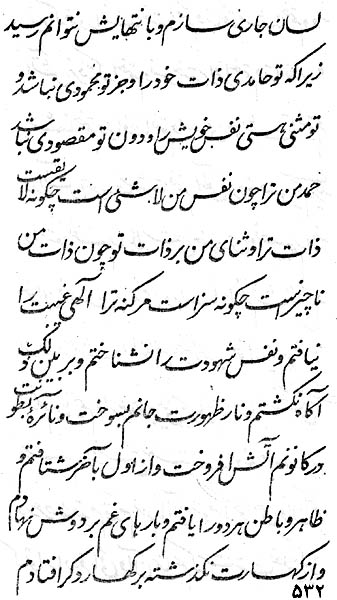 لسان جاری سازم و بانتهایش نتوانم رسید
زیرا که تو حامدی ذات خود را و جز تو محمودی نباشد و
تو مثنی هستی نفس خویش را و دون تو مقصودی نباشد
حمد من ترا چون نفس من لاشئی است چگونه لایقست
ذات ترا و ثنای من بر ذات تو چون ذات من
ناچیز است چگونه سزاست مر کنه ترا الهی غیبت را
نیافتم و نفس شهودت را نشناختم و بر
آگاه نگشتم و نار ظهورت جانم بسوخت و نائره
در کانونم آتش افروخت و از اول بآخر شتافتم و
ظاهر و باطن هر دو را یافتم و بارهای غم بر دوش نهادم
و از کهسارت نگذشته بر کهسار دگر افتادم
۵۳۲